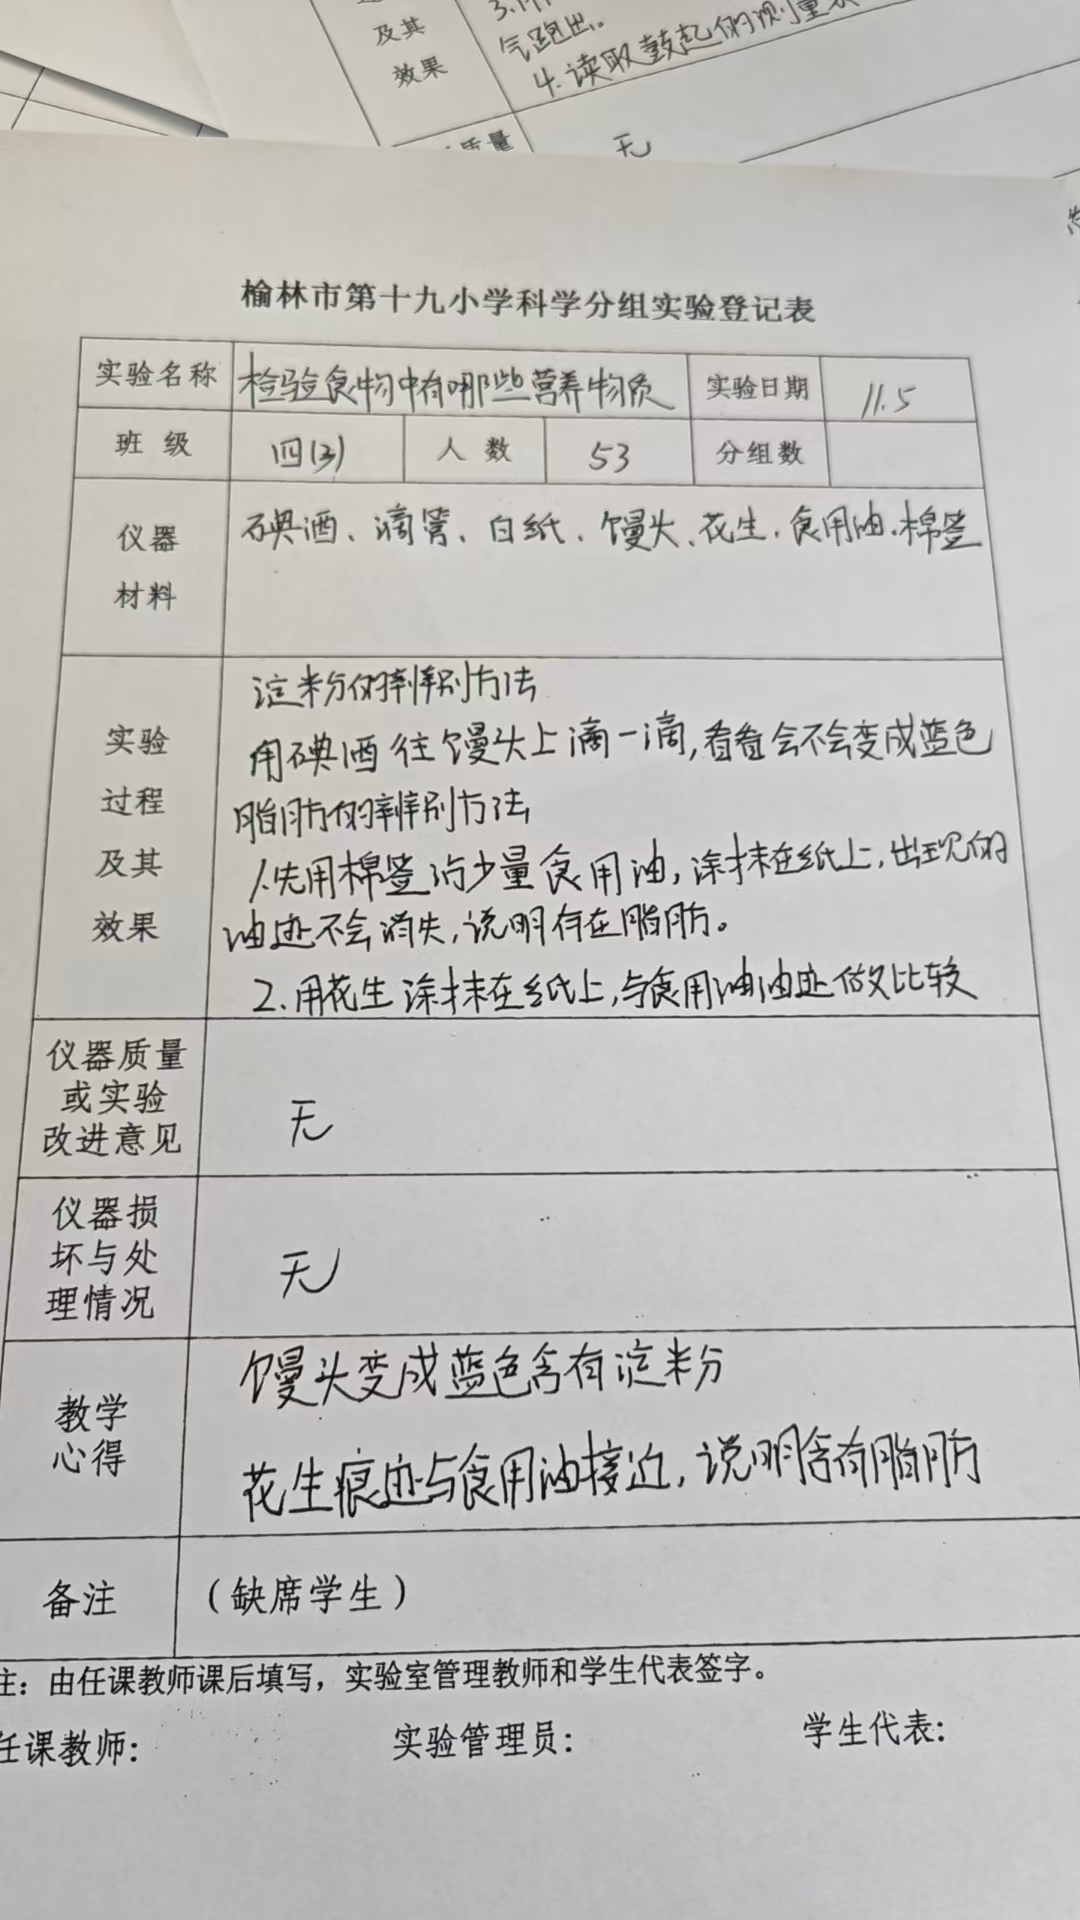 及其
效果
气跑出。
4.读取鼓起的
质量
无
榆林市第十九小学科学分组实验登记表
实验名称 检验食物中有哪些营养物质 实验日期 11.5
班级 四(3) 人数 53 分组数
仪器 碘酒、滴管、白纸、馒头、花生、食用油、棉签
材料
淀粉的辨别方法
实验 用碘酒往馒头上滴一滴,看看会不会变成蓝色
过程 脂肪的辨别方法
及其 1.先用棉签沾少量食用油,涂抹在纸上,出现的
效果 油迹不会消失,说明存在脂肪。
2.用花生涂抹在纸上,与食用油油迹做比较
仪器质量
或实验 无
改进意见
仪器损
坏与处 无
理情况
馒头变成蓝色含有淀粉
教学
心得
花生痕迹与食用油接近,说明含有脂肪
备注 (缺席学生)
注:由任课教师课后填写,实验室管理教师和学生代表签字。
任课教师: 实验管理员: 学生代表: